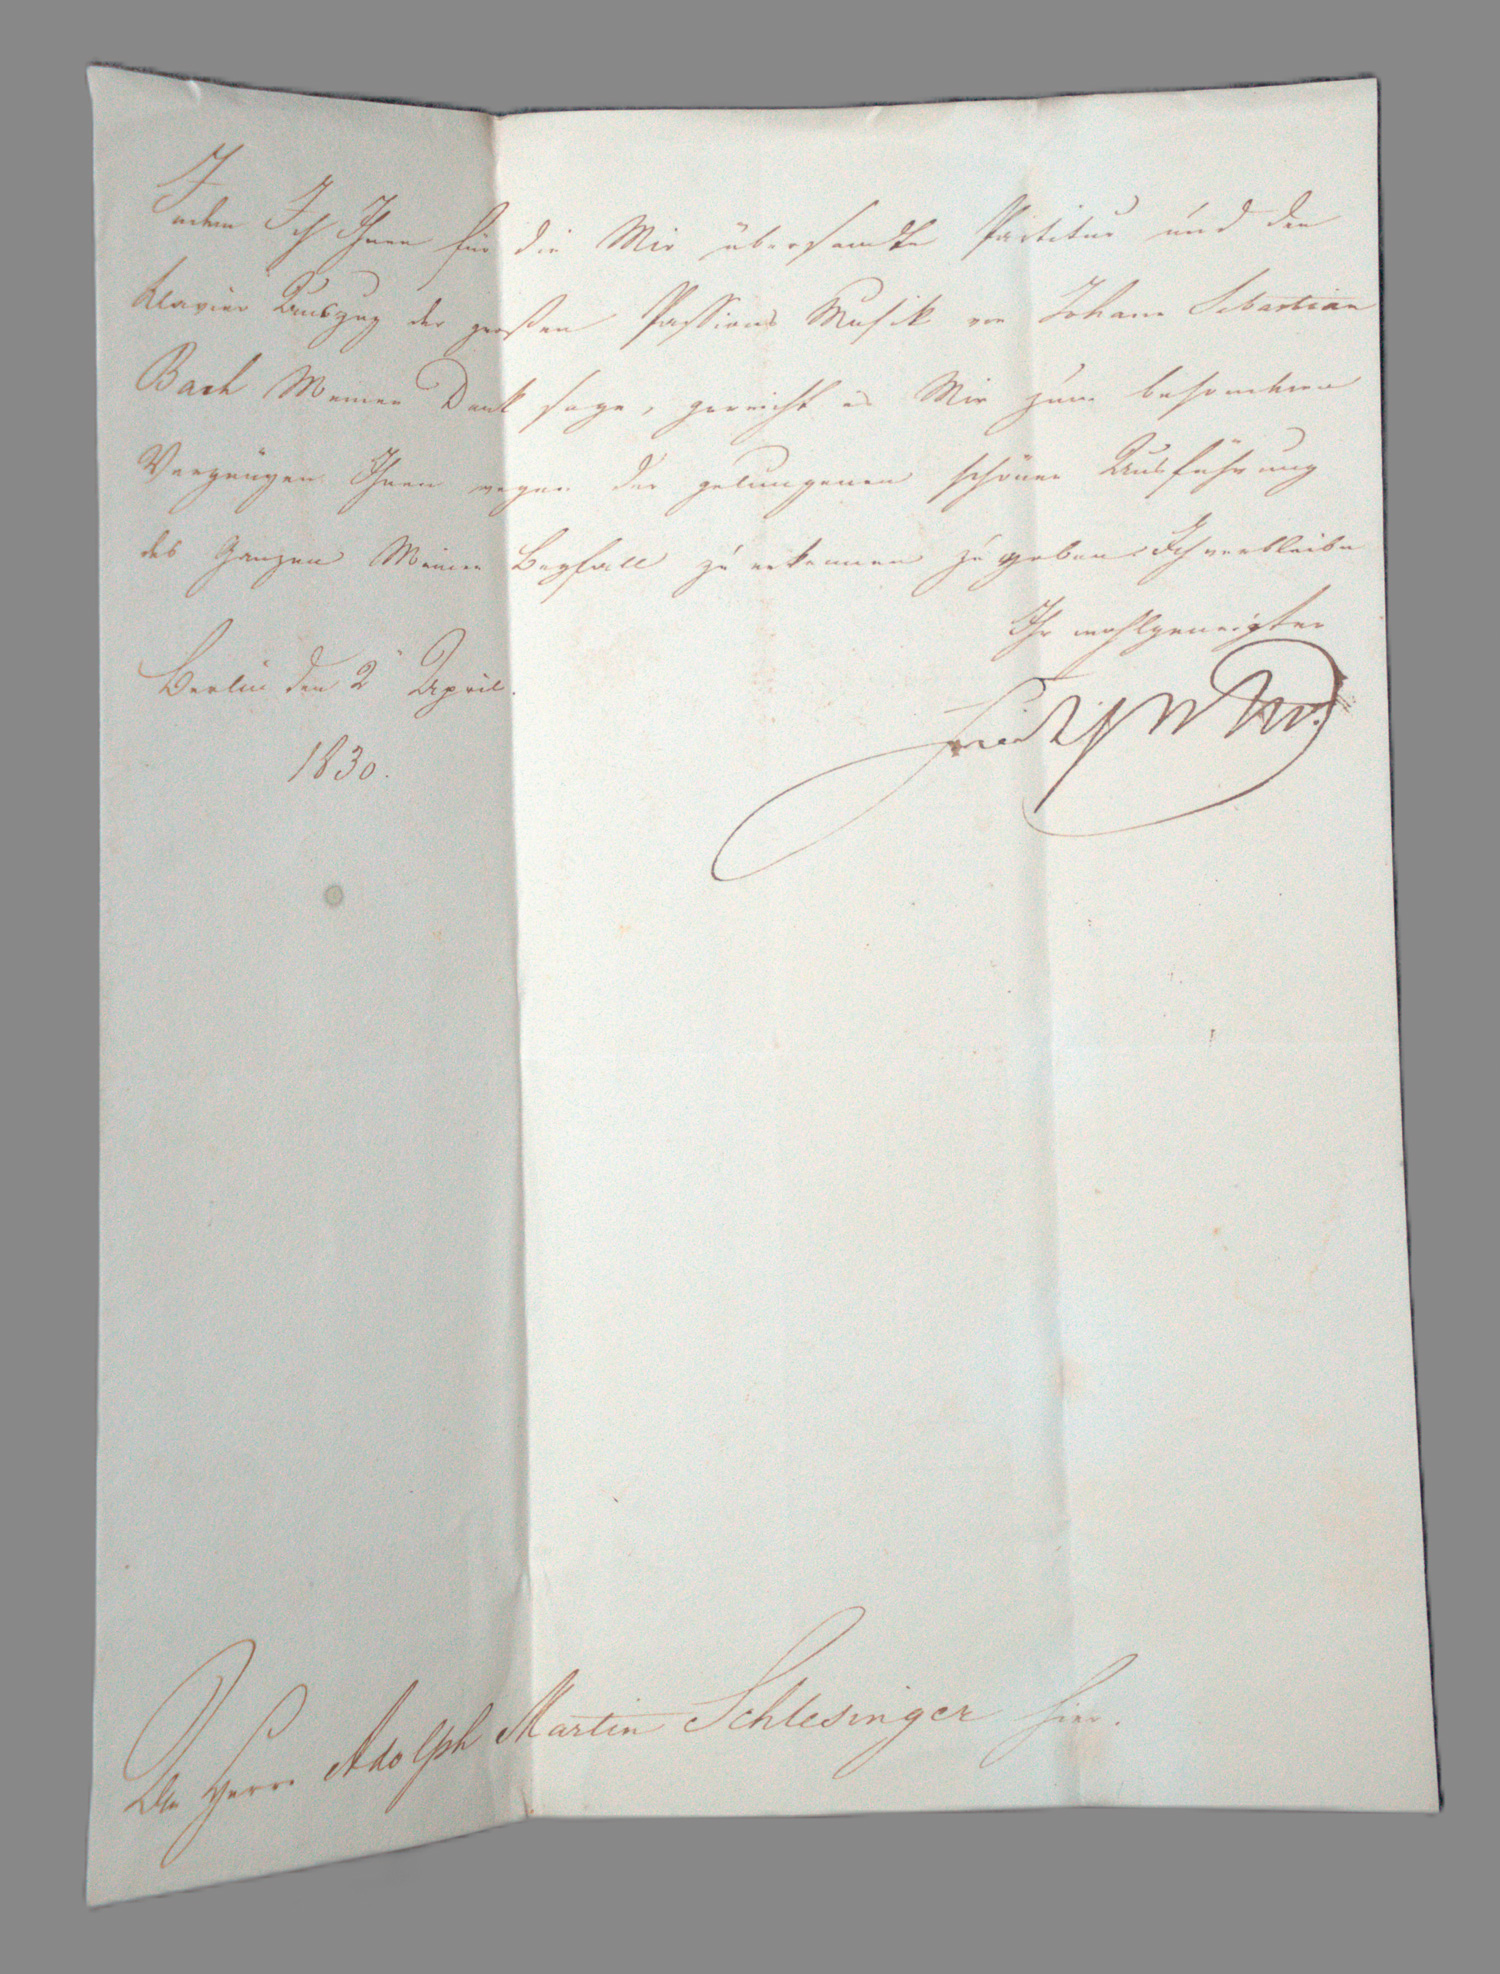 Indem Ich Ihnen für die Mir übersandte Partitur und den
Klavier Auszug der großen Passions Musik von Johann Sebastian
Bach Meinen Dank sage, gereicht es Mir zum besondern
Vergnügen Ihnen wegen der gelungenen schönen Ausführung
des Ganzen Meinen Beyfall zu erkennen zu geben. Ich verbleibe
Ihr wohlgeneigter
Berlin den 2 April.
1830.
An Herrn Adolph Martin Schlesinger hier.